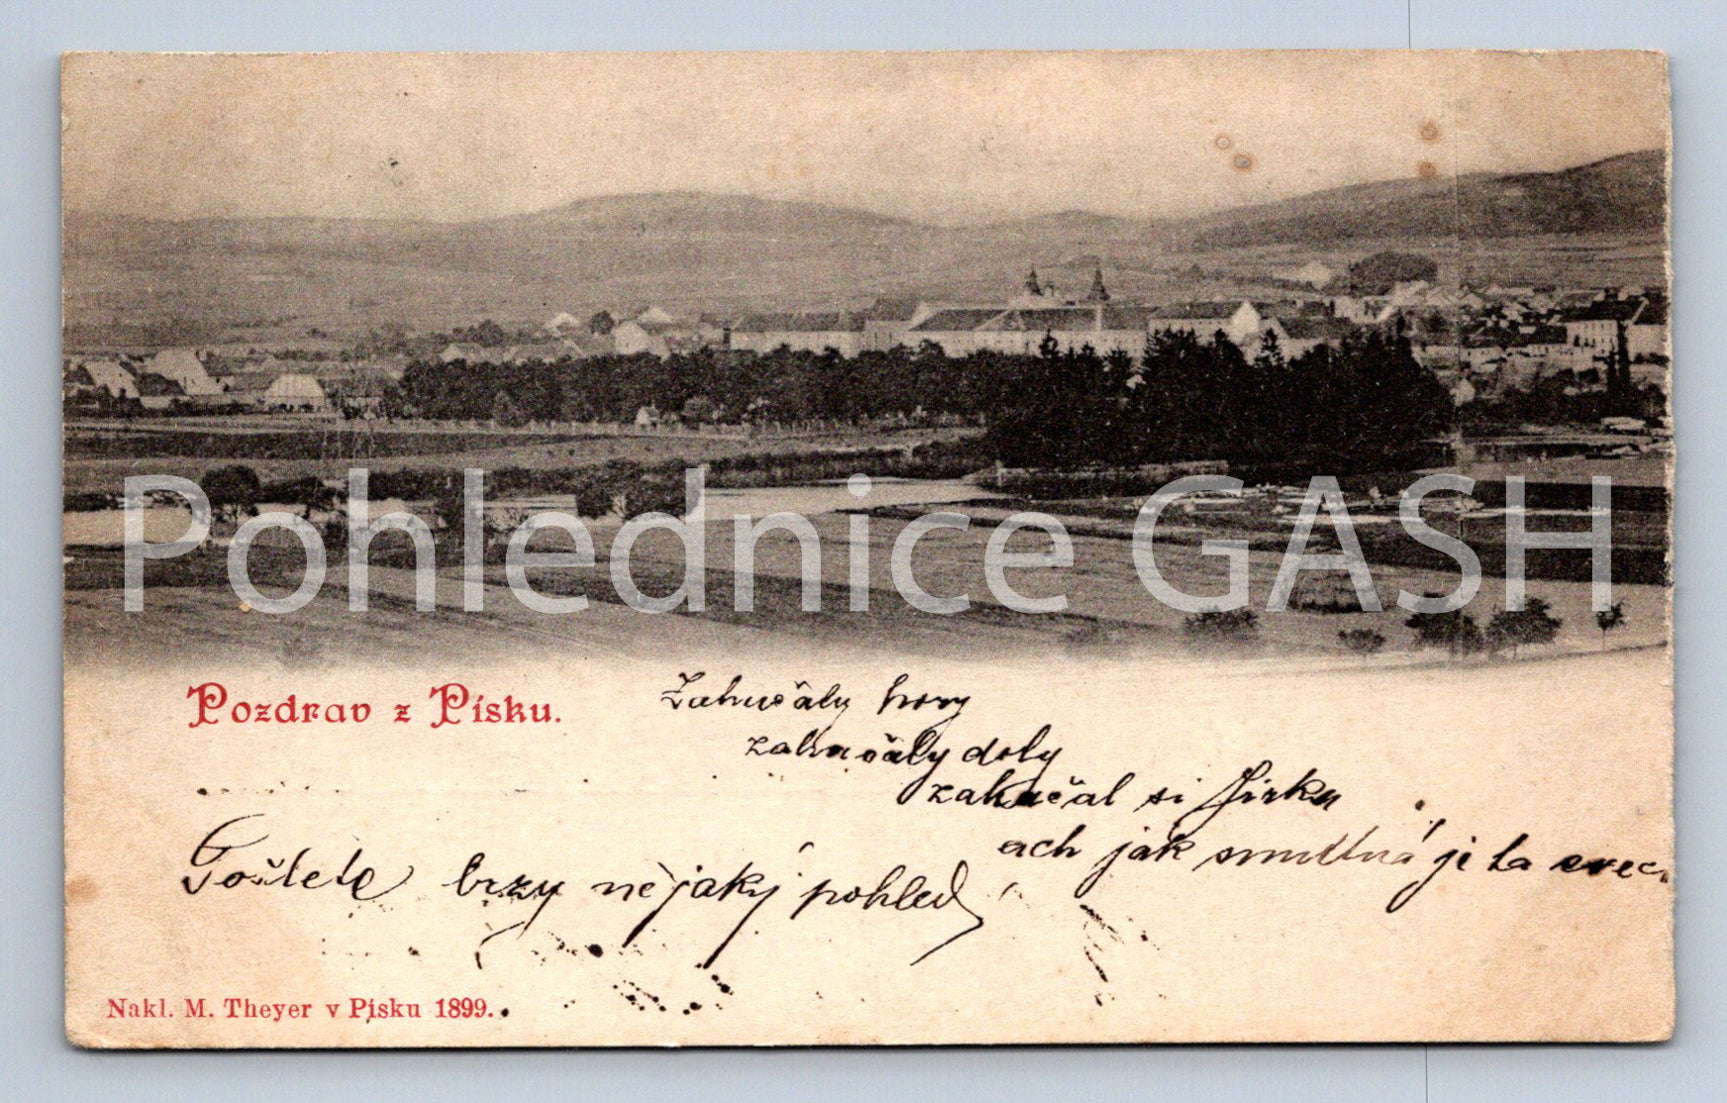 Pohlednice GASH
Pozdrav z Písku.
Zahučaly hory
zahučaly doly
zahučal si Jirku
ach jak smutná je ta věc
Pošlete brzy nějaký pohled
Nakl. M. Theyer v Písku 1899.